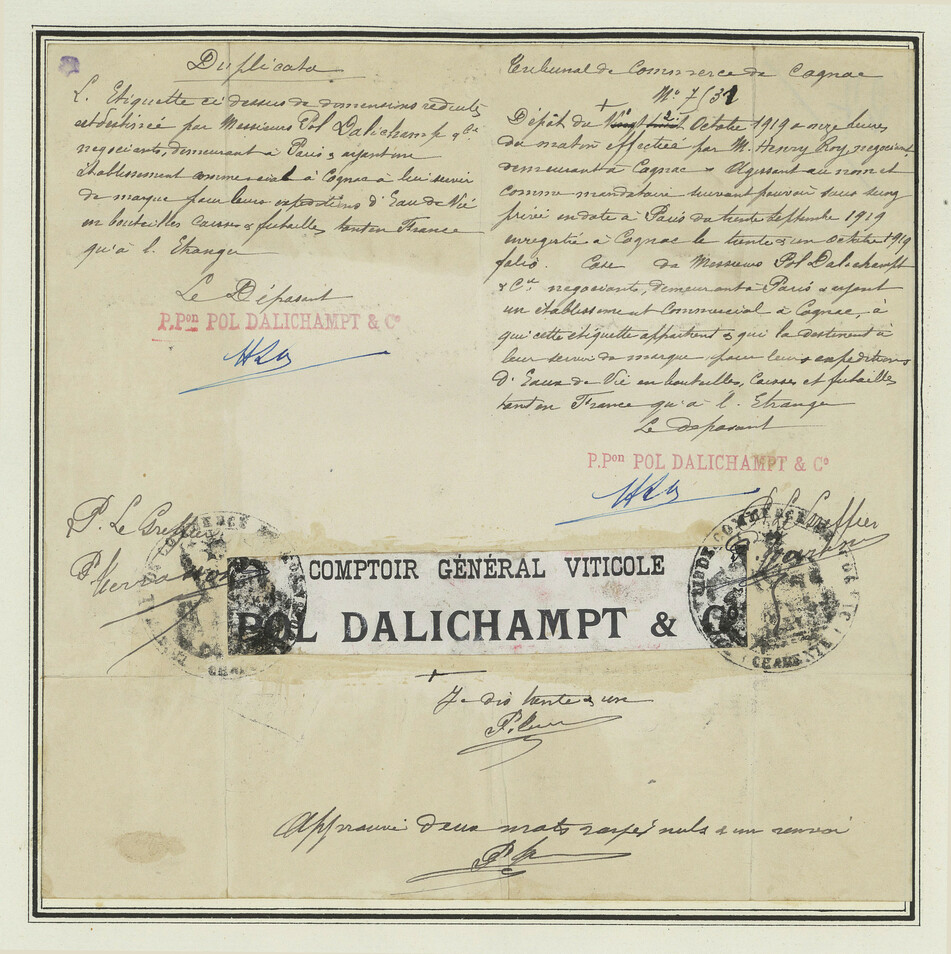 Duplicata
L. Etiquette ci dessus de dimensions réduites
est destinée par Messieurs Pol Dalichamp & Cie
negociants, demeurant à Paris & ayant un
établissement commercial à Cognac à leur servir
de marque pour leurs expeditions d'Eau de Vie
en bouteilles caisses & futailles tant en France
qu'à l. Etranger
Le Déposant
P.Pon POL DALICHAMPT & Co
P. Le Greffier
Tribunal de Commerce de Cognac
No 7531
Dépôt du Vingt huit Octobre 1919 a onze heures
du matin effectué par M. Henry Roy, negociant,
demeurant à Cognac & Agissant au nom et
comme mandataire suivant pouvoir sous seing
privé en date à Paris du trente Septembre 1919
enregistré à Cognac le trente & un octobre 1919
folio. Case du Messieurs Pol Dalichampt
& Cie negociants, demeurant à Paris & ayant
un établissement Commercial à Cognac, à
qui cette étiquette appartient & qui la destinent à
leur servir de marque pour leurs expeditions
d'Eaux de Vie en bouteilles, Caisses et futailles
tant en France qu'à l. Etranger
Le deposant
P.Pon POL DALICHAMPT & Co
P. Le Greffier
COMPTOIR GÉNÉRAL VITICOLE
POL DALICHAMPT & Co
Je dis trente & un
Approuvé deux mots rayés nuls & un renvoi